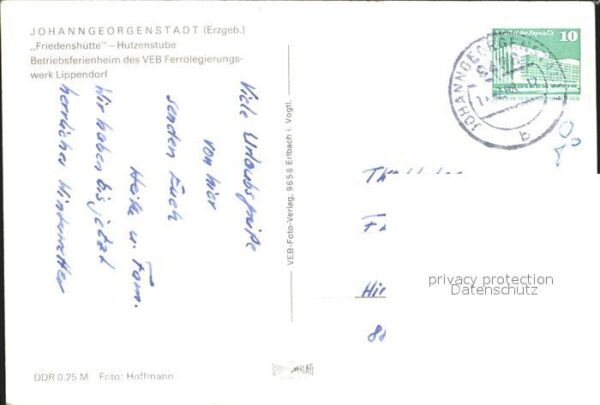 JOHANNGEORGENSTADT (Erzgeb.)
„Friedenshütte" – Hutzenstube
Betriebsferienheim des VEB Ferrolegierungs-
werk Lippendorf
Viele Urlaubsgrüße
von hier
senden Euch
Heike u. Fam.
Wir haben bis jetzt
herrliches Winterwetter
VEB-Foto-Verlag, 9658 Erlbach i. Vogtl.
der Republik
10
JOHANNGEORGENSTADT
b
privacy protection
Datenschutz
DDR 0,25 M Foto: Hoffmann